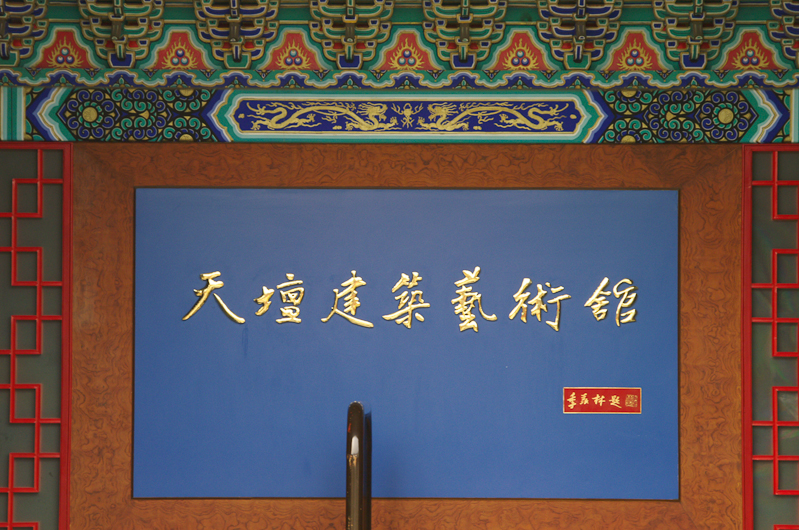 天壇建築藝術館
李蒼祥題